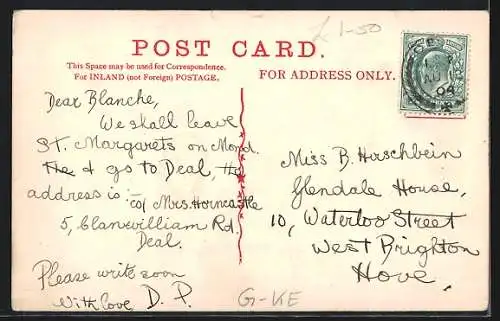 £1-50
POST CARD.
This Space may be used for Correspondence.
For INLAND (not Foreign) POSTAGE.
FOR ADDRESS ONLY.
Dear Blanche,
We shall leave
St. Margarets on Mond.
The & go to Deal, the
address is :-
c/o Mrs. Horncastle
5, Clanwilliam Rd.
Deal.
Please write soon
With love D. P.
Miss B. Hirschbein
Glendale House,
10, Waterloo Street
West Brighton
Hove.
G-KE